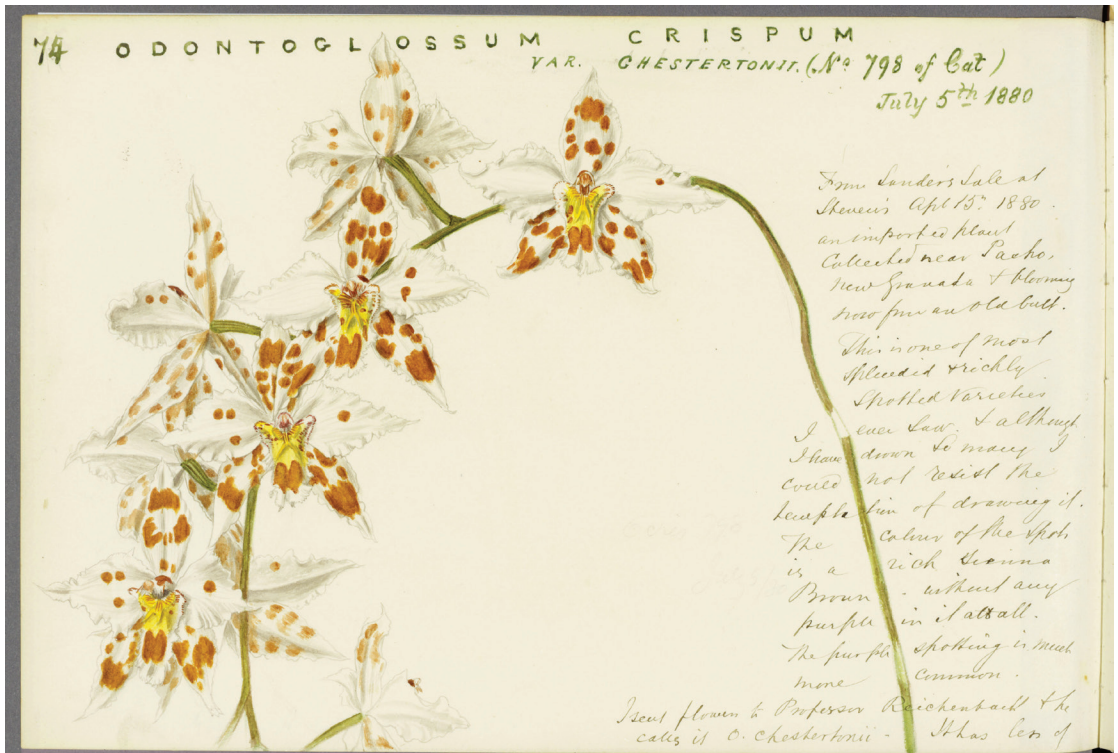 74 ODONTOGLOSSUM CRISPUM
VAR. CHESTERTONII. (No 798 of Cat)
July 5th 1880
From Sander's Sale at
Stevens Apl 15th 1880.
an imported plant
Collected near Pacho,
New Granada & blooming
now from an old bulb.
This is one of most
splendid & richly
Spotted Varieties
I ever saw. & although
I have drawn so many I
could not resist the
temptation of drawing it.
The colour of the spots
is a rich Sienna
Brown - without any
purple in it at all.
The purple spotting is much
more common.
I sent flowers to Professor Reichenbach & he
calls it O. Chestertonii - It has less of